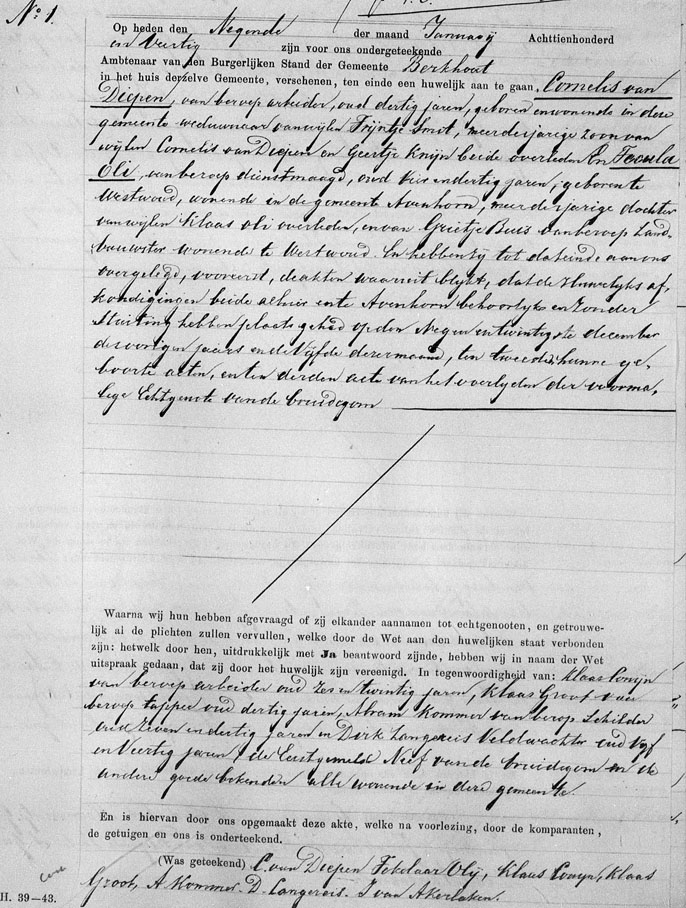 No. 1.
Op heden den Negende der maand Januarij Achttienhonderd
en Veertig zijn voor ons ondergeteekende
Ambtenaar van den Burgerlijken Stand der Gemeente Berkhout
in het huis derzelve Gemeente, verschenen, ten einde een huwelijk aan te gaan, Cornelis van
Diepen, van beroep arbeider, oud dertig jaren, geboren en wonende in deze
gemeente weduwnaar van wijlen Trijntje Smit, meerderjarige zoon van
wijlen Cornelis van Diepen en Geertje Knijn beide overleden En Tecula
Oli, van beroep dienstmaagd, oud vier en dertig jaren, geboren te
Westwoud, wonende in de gemeente Avenhorn, meerderjarige dochter
van wijlen Klaas Oli overleden, en van Grietje Buis van beroep Land-
bouwster wonende te Westwoud. En hebben zij tot dat einde aan ons
overgelegd, vooreerst, de akten waaruit blykt, dat de Huwelyks af-
kondigingen beide alhier en te Avenhorn behoorlyk en zonder
Stuiting hebben plaats gehad op den Negen en twintigste december
des vorigen jaars en de Vijfde dezer maand, ten tweede, hunne ge-
boorte acten, en ten derden acte van het overlyden der voorma-
lige Echtgenote van de bruidegom
Waarna wij hun hebben afgevraagd of zij elkander aannamen tot echtgenooten, en getrouwe-
lijk al de plichten zullen vervullen, welke door de Wet aan den huwelijken staat verbonden
zijn: hetwelk door hen, uitdrukkelijk met Ja beantwoord zijnde, hebben wij in naam der Wet
uitspraak gedaan, dat zij door het huwelijk zijn vereenigd. In tegenwoordigheid van: Klaas Conijn
van beroep arbeider oud Zes en twintig jaren, Klaas Groot van
beroep tapper oud dertig jaren, Abram Kommer van beroep Schilder
oud Zeven en dertig jaren en Dirk Langereis Veldwachter oud Vyf
en Veertig jaren, de Eerstgemelde Neef van de bruidegom en de
andere goede bekenden alle wonende in deze gemeente.
En is hiervan door ons opgemaakt deze akte, welke na voorlezing, door de komparanten,
de getuigen en ons is onderteekend.
(Was geteekend) C. van Diepen Tekelaar Olij, Klaas Conijn, Klaas
Groot, A Kommer. D. Langereis. J van Akerlaken.
H. 39—43.